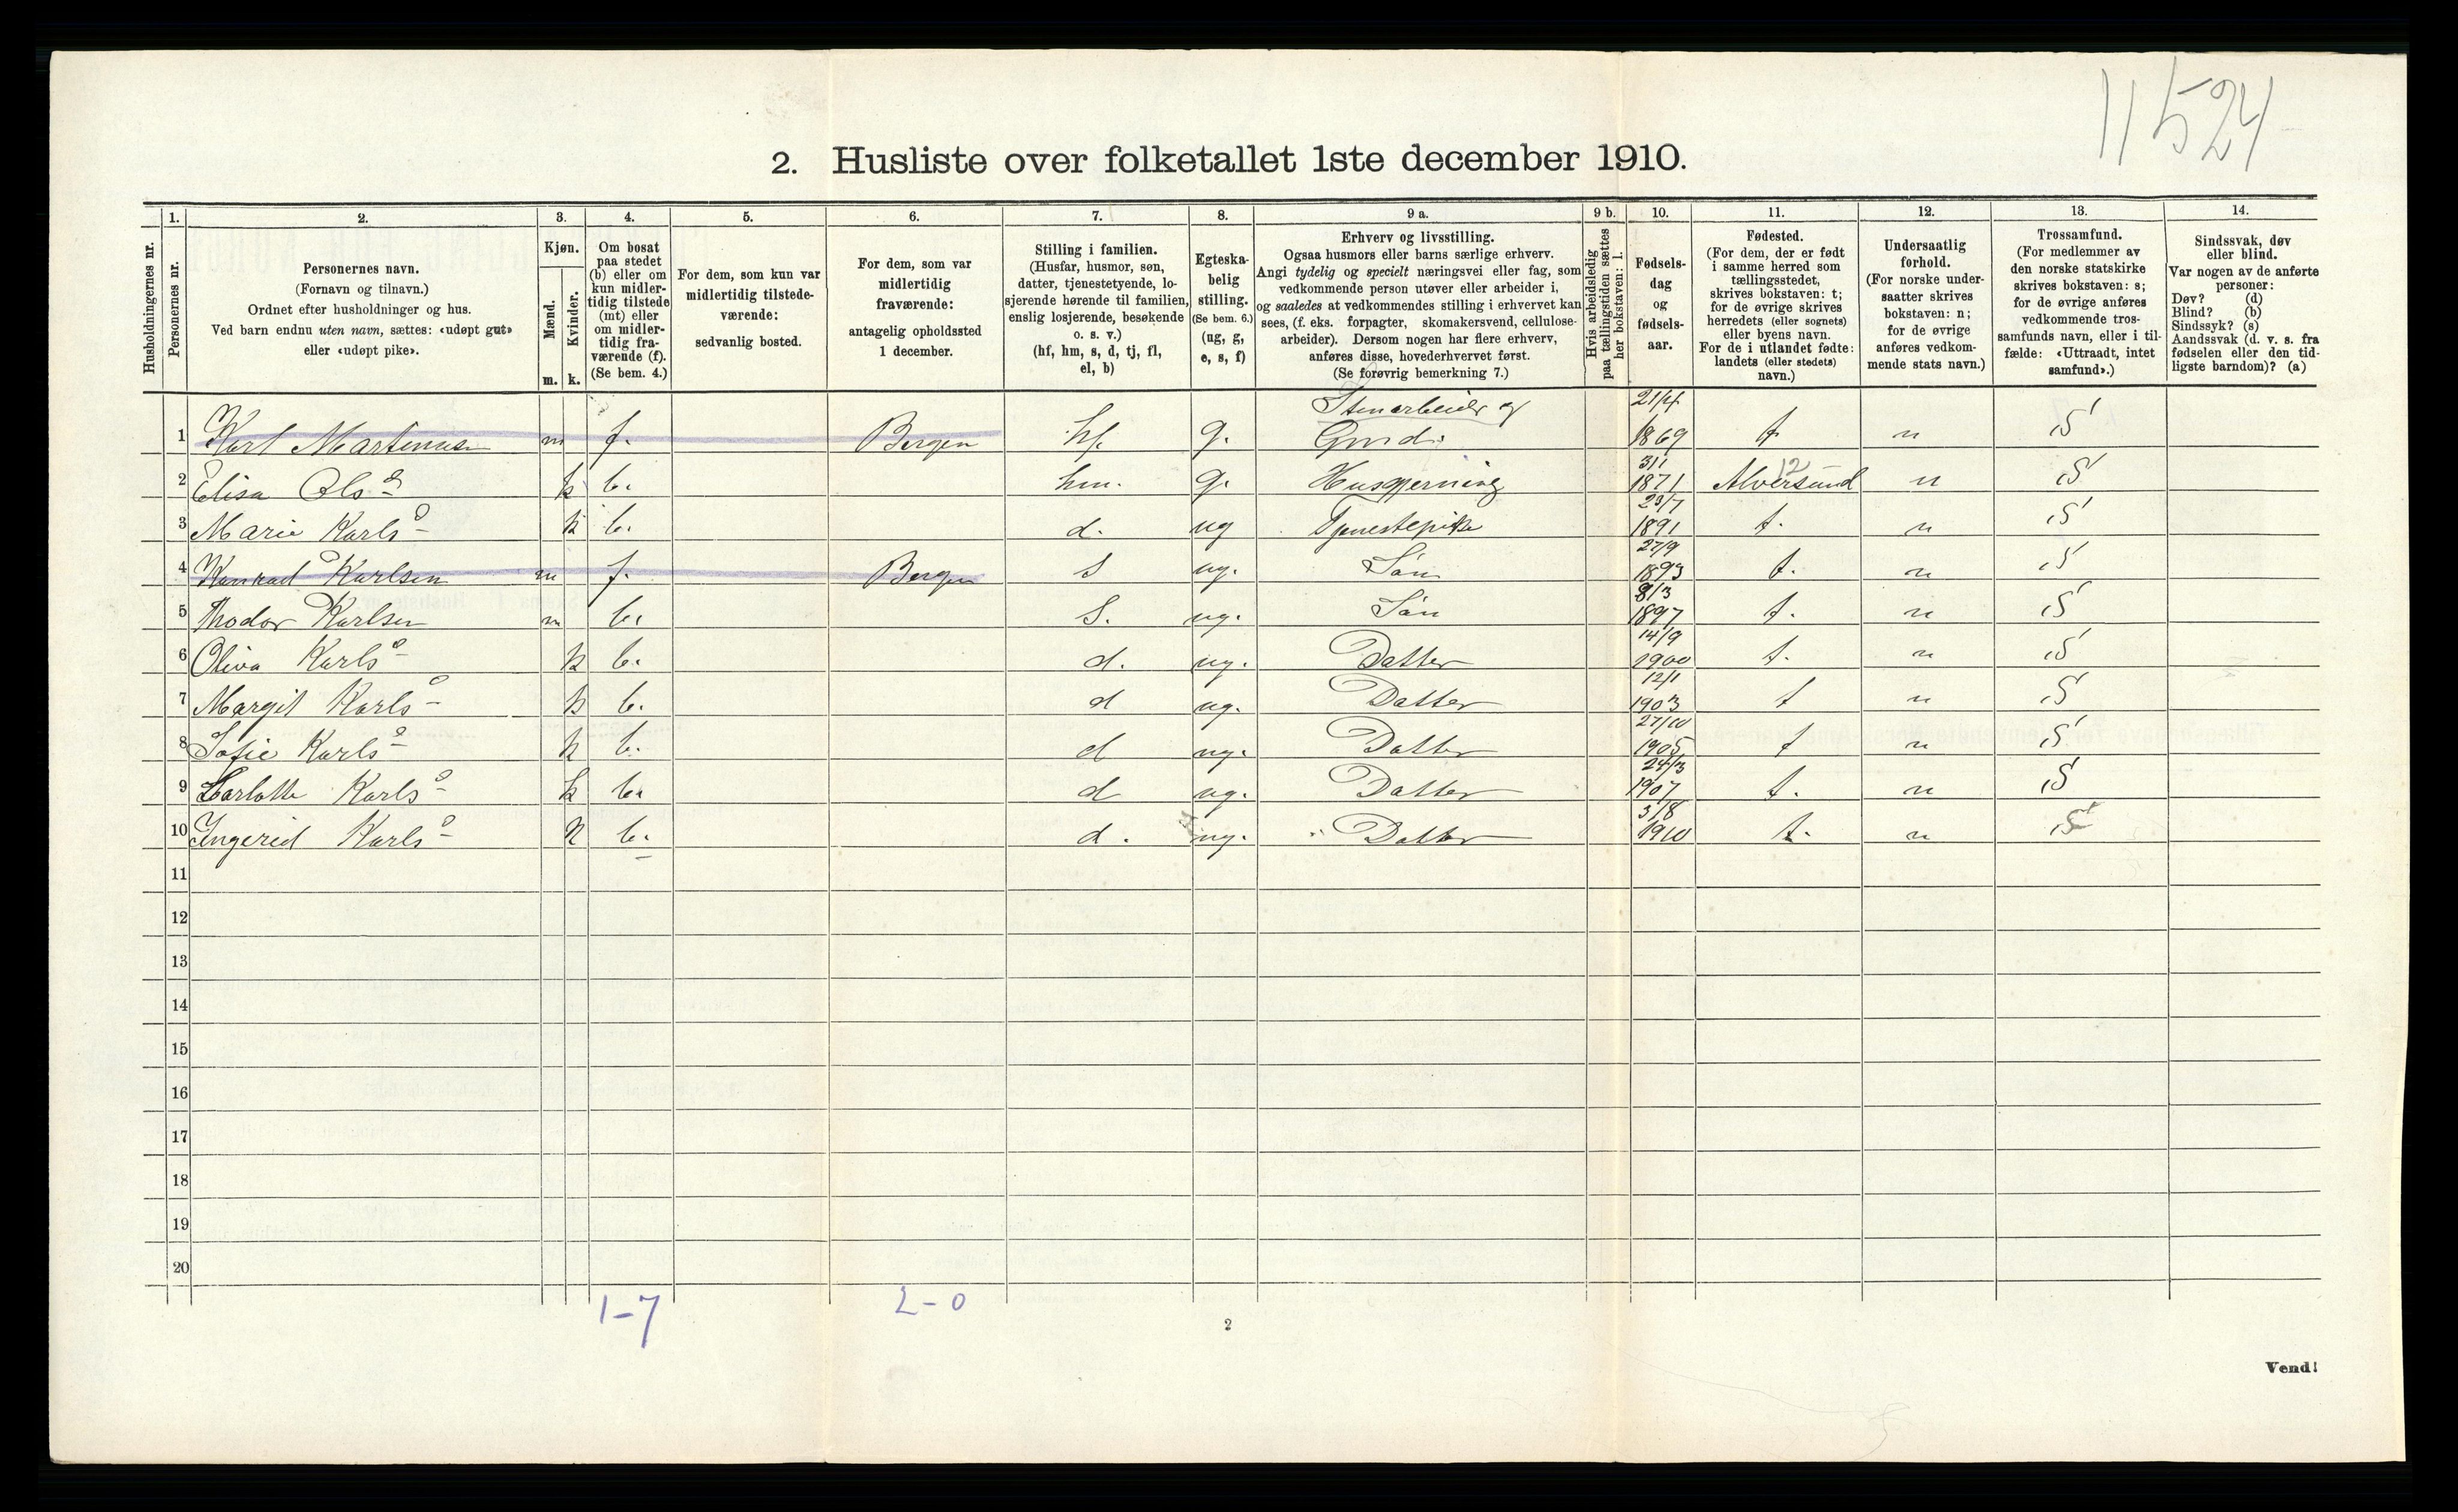 11 524
2. Husliste over folketallet 1ste december 1910.
Husholdningernes nr.
1.
Personernes nr.
2.
Personernes navn.
(Fornavn og tilnavn.)
Ordnet efter husholdninger og hus.
Ved barn endnu uten navn, sættes: «udøpt gut»
eller «udøpt pike».
3.
Kjøn.
Mænd.
Kvinder.
m. k.
4.
Om bosat
paa stedet
(b) eller om
kun midler-
tidig tilstede
(mt) eller
om midler-
tidig fra-
værende (f).
(Se bem. 4.)
5.
For dem, som kun var
midlertidig tilstede-
værende:
sedvanlig bosted.
6.
For dem, som var
midlertidig
fraværende:
antagelig opholdssted
1 december.
7.
Stilling i familien.
(Husfar, husmor, søn,
datter, tjenestetyende, lo-
sjerende hørende til familien,
enslig losjerende, besøkende
o. s. v.)
(hf, hm, s, d, tj, fl,
el, b)
8.
Egteska-
belig
stilling.
(Se bem. 6.)
(ug, g,
e, s, f)
9 a.
Erhverv og livsstilling.
Ogsaa husmors eller barns særlige erhverv.
Angi tydelig og specielt næringsvei eller fag, som
vedkommende person utøver eller arbeider i,
og saaledes at vedkommendes stilling i erhvervet kan
sees, (f. eks. forpagter, skomakersvend, cellulose-
arbeider). Dersom nogen har flere erhverv,
anføres disse, hovederhvervet først.
(Se forøvrig bemerkning 7.)
9 b.
Hvis arbeidsledig
paa tællingstiden sættes
her bokstaven: l.
10.
Fødsels-
dag
og
fødsels-
aar.
11.
Fødested.
(For dem, der er født
i samme herred som
tællingsstedet,
skrives bokstaven: t;
for de øvrige skrives
herredets (eller sognets)
eller byens navn.
For de i utlandet fødte:
landets (eller stedets)
navn.)
12.
Undersaatlig
forhold.
(For norske under-
saatter skrives
bokstaven: n;
for de øvrige
anføres vedkom-
mende stats navn.)
13.
Trossamfund.
(For medlemmer av
den norske statskirke
skrives bokstaven: s;
for de øvrige anføres
vedkommende tros-
samfunds navn, eller i til-
fælde: «Uttraadt, intet
samfund».)
14.
Sindssvak, døv
eller blind.
Var nogen av de anførte
personer:
Døv? (d)
Blind? (b)
Sindssyk? (s)
Aandssvak (d. v. s. fra
fødselen eller den tid-
ligste barndom)? (a)
Stenarbeider og 21/4
1 Karl Martinsen m f. Bergen hf. g. Gmd. 1869 t. n S
3/1 12
2 Elisa Ols d k b. hm. g. Husgjerning 1871 Alversund n S
23/7
3 Marie Karls d k b. d. ug Tjenestepike 1891 t. n S
27/9
4 Konrad Karlsen m f. Bergen S ug. Søn 1893 t. n S
8/3
5 Thodor Karlsen m b. S. ug. Søn 1897 t. n S
14/9
6 Oliva Karls d k b. d. ug. Datter 1900 t. n S
12/1
7 Margit Karls d k b. d ug. Datter 1903 t n S
27/10
8 Sofie Karls d k b. d ug. Datter 1905 t n S
24/3
9 Karlotte Karls d k b. d ug. Datter 1907 t. n S
3/8
10 Ingerid Karls d k b. d. ug. Datter 1910 t. n S
11
12
13
14
15
16
17
18
19
20
1-7 2-0
2
Vend!